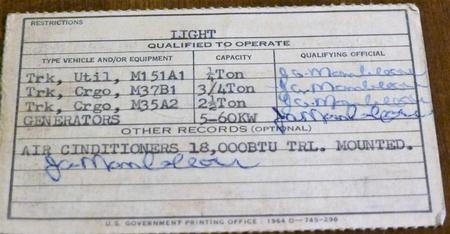 RESTRICTIONS
LIGHT
QUALIFIED TO OPERATE
TYPE VEHICLE AND/OR EQUIPMENT CAPACITY QUALIFYING OFFICIAL
Trk, Util, M151A1 ¼Ton
Trk, Crgo, M37B1 3/4Ton
Trk, Crgo, M35A2 2½Ton
GENERATORS 5-60KW
OTHER RECORDS (OPTIONAL)
AIR CINDITIONERS 18,000BTU TRL. MOUNTED.
U.S. GOVERNMENT PRINTING OFFICE : 1964 O—745-296